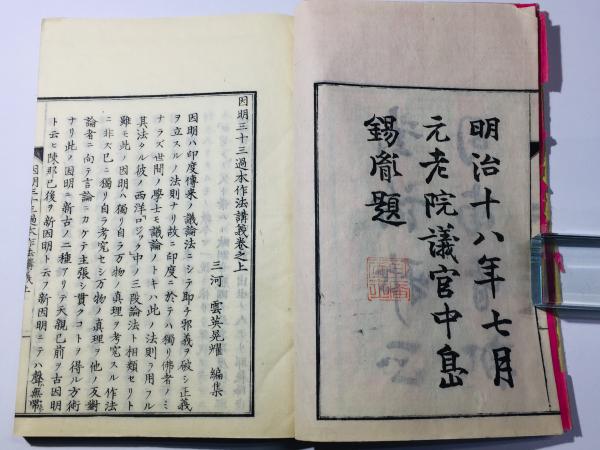 明治十八年七月
元老院議官中島
錫胤題
因明三十三過本作法講義卷之上
三河 雲英晃耀 編集
因明ハ印度傳来ノ議論法ニシテ即チ邪義ヲ破シ正義
ヲ立スルノ法則ナリ故ニ印度ニ於テハ獨リ佛者ノミ
ナラズ世間ノ學士モ議論ノトキハ此ノ法則ヲ用フル
其法タル彼ノ西洋ロジック中ノ三段論法ト相類セリト
雖モ此ノ因明ハ獨リ自ラ万物ノ真理ヲ考究スル作法
ニ非ス已ニ獨リ自ラ考究セシ万物ノ真理ヲ他ノ反對
論者ニ向テ言論ニカケテ主張シ貫クコトヲ得ル方術
ナリ此ノ因明ニ新古ノ二種アリテ天親已前ヲ古因明
ト云ヒ陳那已後ヲ新因明ト云フ新因明ニテハ聲無常
因明三十三過本作法講義上